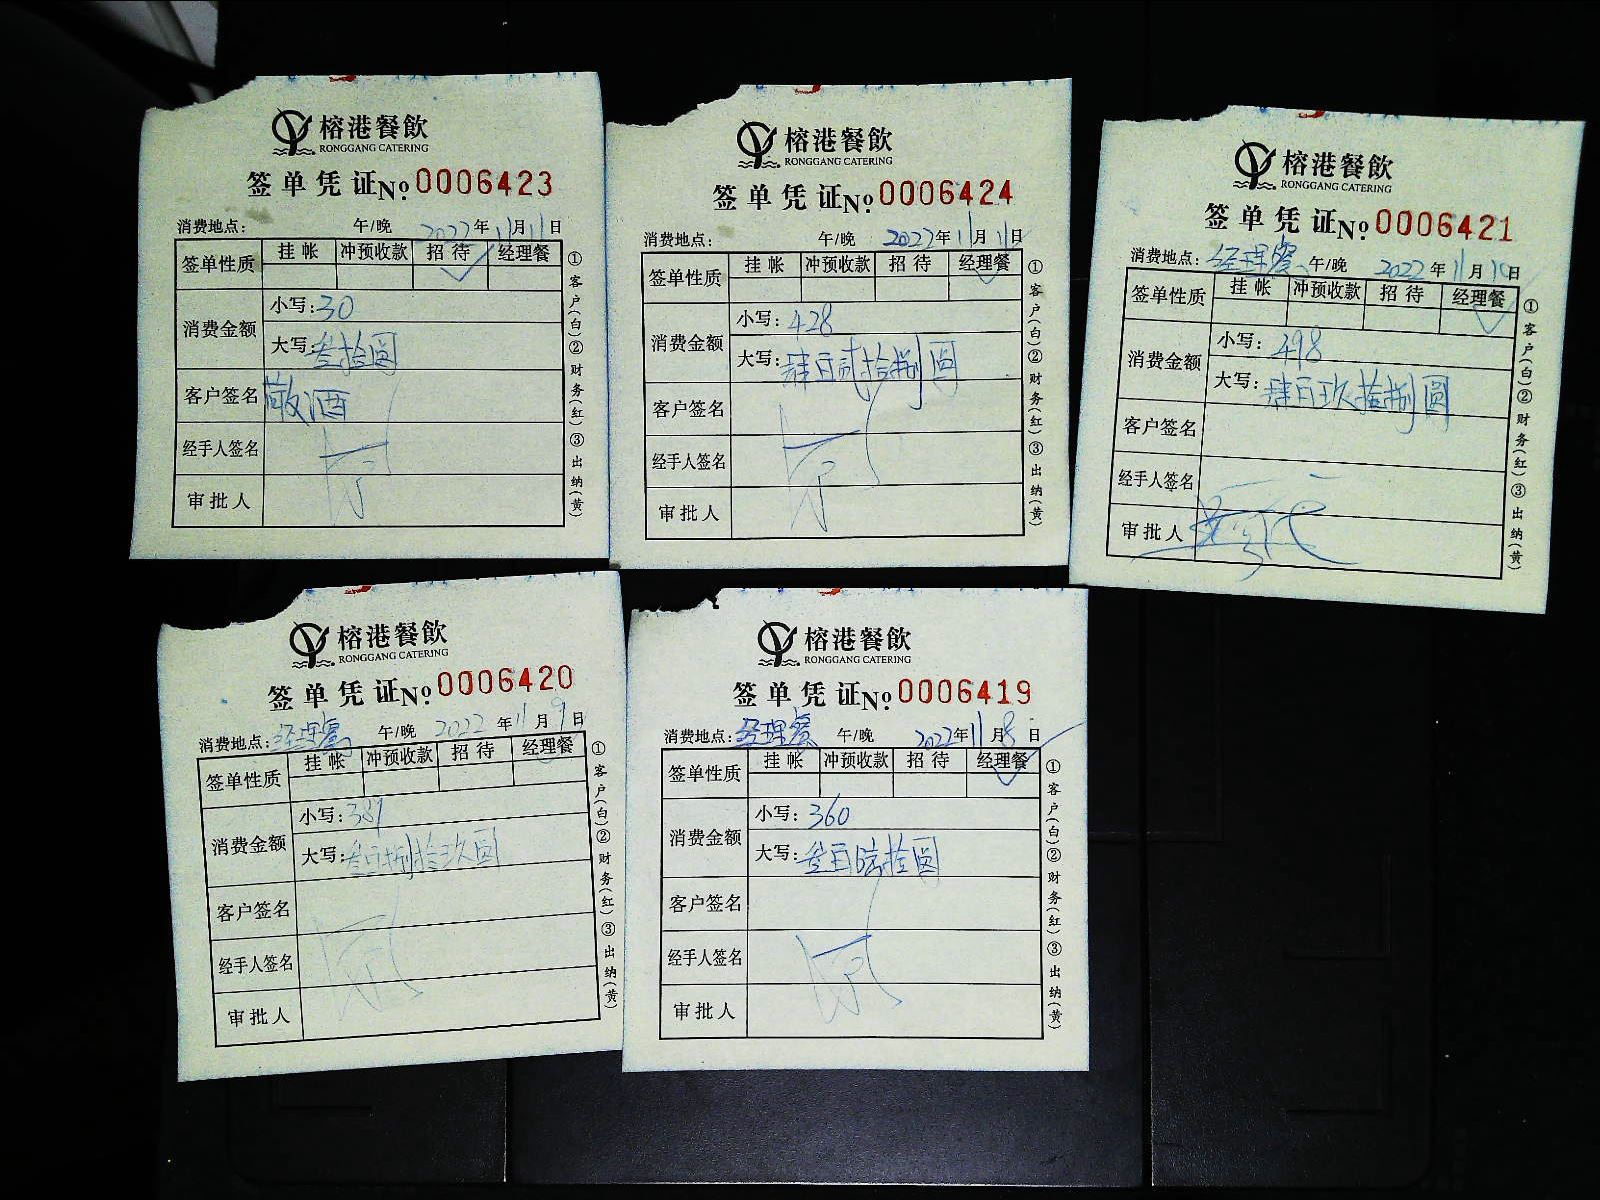 榕港餐飲
RONGGANG CATERING
签单凭证 No. 0006423
消费地点: 午/晚 2022年11月11日
签单性质 挂帐 冲预收款 招待 经理餐
消费金额 小写: 30
大写: 叁拾圆
客户签名 散酒
经手人签名
审批人
①客户(白)②财务(红)③出纳(黄)
榕港餐飲
RONGGANG CATERING
签单凭证 No. 0006424
消费地点: 午/晚 2022年11月11日
签单性质 挂帐 冲预收款 招待 经理餐
消费金额 小写: 428
大写: 肆百贰拾捌圆
客户签名
经手人签名
审批人
①客户(白)②财务(红)③出纳(黄)
榕港餐飲
RONGGANG CATERING
签单凭证 No. 0006421
消费地点: 经理餐 午/晚 2022年11月10日
签单性质 挂帐 冲预收款 招待 经理餐
消费金额 小写: 498
大写: 肆百玖拾捌圆
客户签名
经手人签名
审批人
①客户(白)②财务(红)③出纳(黄)
榕港餐飲
RONGGANG CATERING
签单凭证 No. 0006420
消费地点: 经理餐 午/晚 2022年11月9日
签单性质 挂帐 冲预收款 招待 经理餐
消费金额 小写: 389
大写: 叁百捌拾玖圆
客户签名
经手人签名
审批人
①客户(白)②财务(红)③出纳(黄)
榕港餐飲
RONGGANG CATERING
签单凭证 No. 0006419
消费地点: 经理餐 午/晚 2022年11月8日
签单性质 挂帐 冲预收款 招待 经理餐
消费金额 小写: 360
大写: 叁百陆拾圆
客户签名
经手人签名
审批人
①客户(白)②财务(红)③出纳(黄)